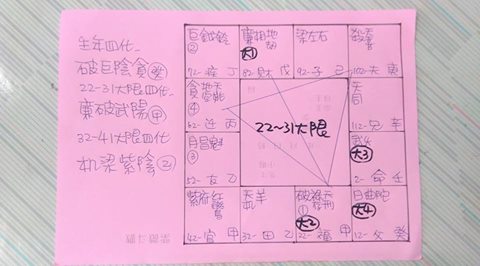 生年四化
破巨陰貪癸
22~31大限四化
廉破武陽甲
32-41大限四化
机梁紫陰乙
巨鉞鈴
②
72-疾丁
廉相地劫
大1
82-財戊
梁左右
92-子己
殺喜
102-夫庚
貪地天
④
62-迁丙
天同
112-兄辛
22~31大限
月昌魁
③
52-友乙
武
大3
2-命壬
紫府紅鸞
42-官甲
天机羊
32-田乙
破祿天刑
①
大2
22-福甲
日曲陀
大4
12-父癸